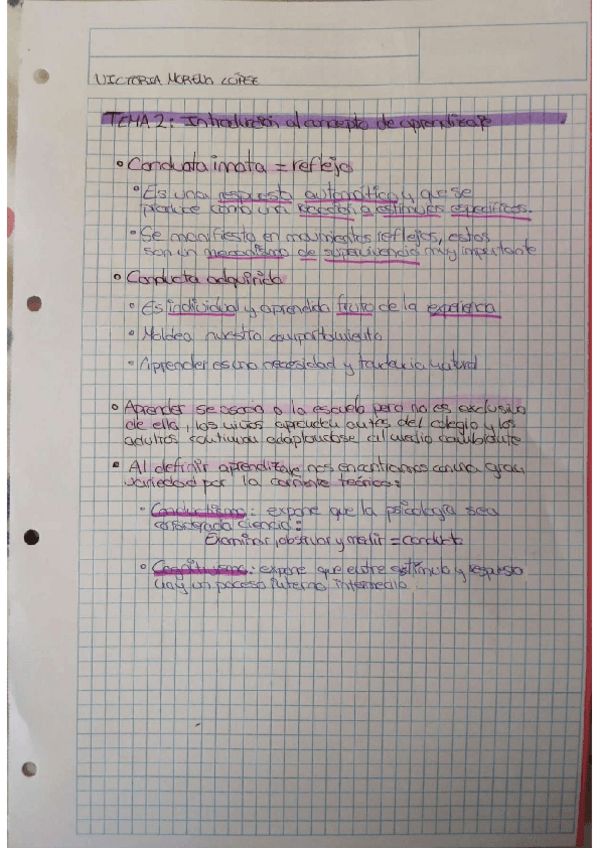 VICTORIA MORENO LÓPEZ
TEMA 2: Introducción al concepto de aprendizaje
Conducta innata = reflejo
Es una respuesta automática y que se
produce como un reacción a estímulos específicos.
Se manifiesta en movimientos reflejos, estos
son un mecanismo de supervivencia muy importante
Conducta adquirida
Es individual y aprendida fruto de la experiencia
Moldea nuestro comportamiento
Aprender es una necesidad y tendencia natural
Aprender se asocia a la escuela pero no es exclusivo
de ella, los niños aprenden antes del colegio y los
adultos continúan adaptándose al medio cambiante
Al definir aprendizaje nos encontramos con una gran
variedad por la corriente teórica:
Conductismo: expone que la psicología sea
considerada ciencia:
Examinar, observar y medir = conducta
Cognitivismo: expone que entre estímulo y respuesta
hay un proceso interno intermedio